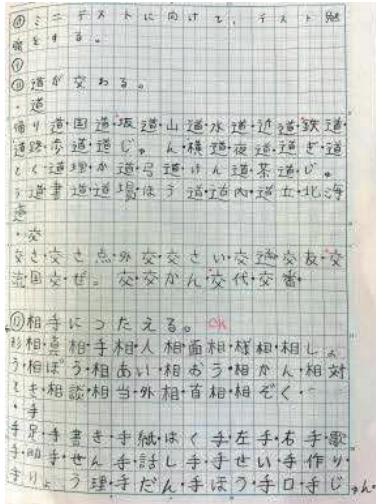 ㋱ミニテストに向けて、テスト勉
強をする。
①
⑪道が交わる。
・道
帰り道・国道・坂道・山道・水道・近道・鉄道・
道路・歩道・道じゅん・横道・夜道・道ぎ・道
とく・道理・か道・弓道・けん道・茶道・じゅ
う道・書道・道場・ほう道・道内・道立・北海
道
・交
交さ・交さ点・外交・交さい・交通・交友・交
流・国交・ぜっ交・交かん・交代・交番・
⑫相手につたえる。 OK
・相
形相・真相・手相・人相・面相・様相・相しょ
う・相ぼう・相あい・相おう・相かん・相対
てき・相談・相当・外相・首相・相ぞく・
・手
手足・手書き・手紙・はく手・左手・右手・歌
手・助手・せん手・話し手・手せい・手作り・
手りょう理・手だん・手ほう・手口・手じゅん・